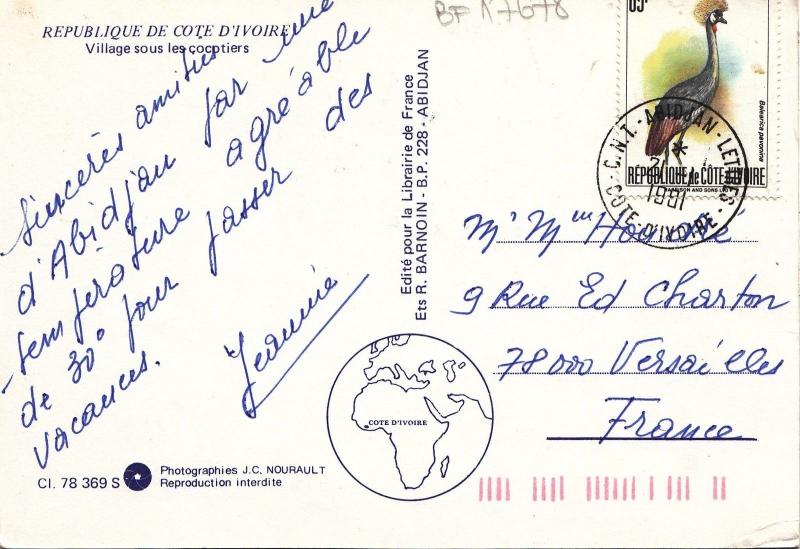 BF 17678
REPUBLIQUE DE COTE D'IVOIRE
Village sous les cocotiers
Sincères amitiés
d'Abidjan par une
température agréable
de 30° pour passer des
vacances.
Jeannie
Edité pour la Librairie de France
Ets R. BARNOIN - B.P. 228 - ABIDJAN
65F
Balearica pavonina
RÉPUBLIQUE de CÔTE D'IVOIRE
HARRISON AND SONS LTD
C.N.T. - ABIDJAN - LETTRES -
1981
COTE-D'IVOIRE
Mr Mme
9 Rue Ed Charton
78000 Versailles
France
COTE D'IVOIRE
CI. 78 369 S
Photographies J.C. NOURAULT
Reproduction interdite